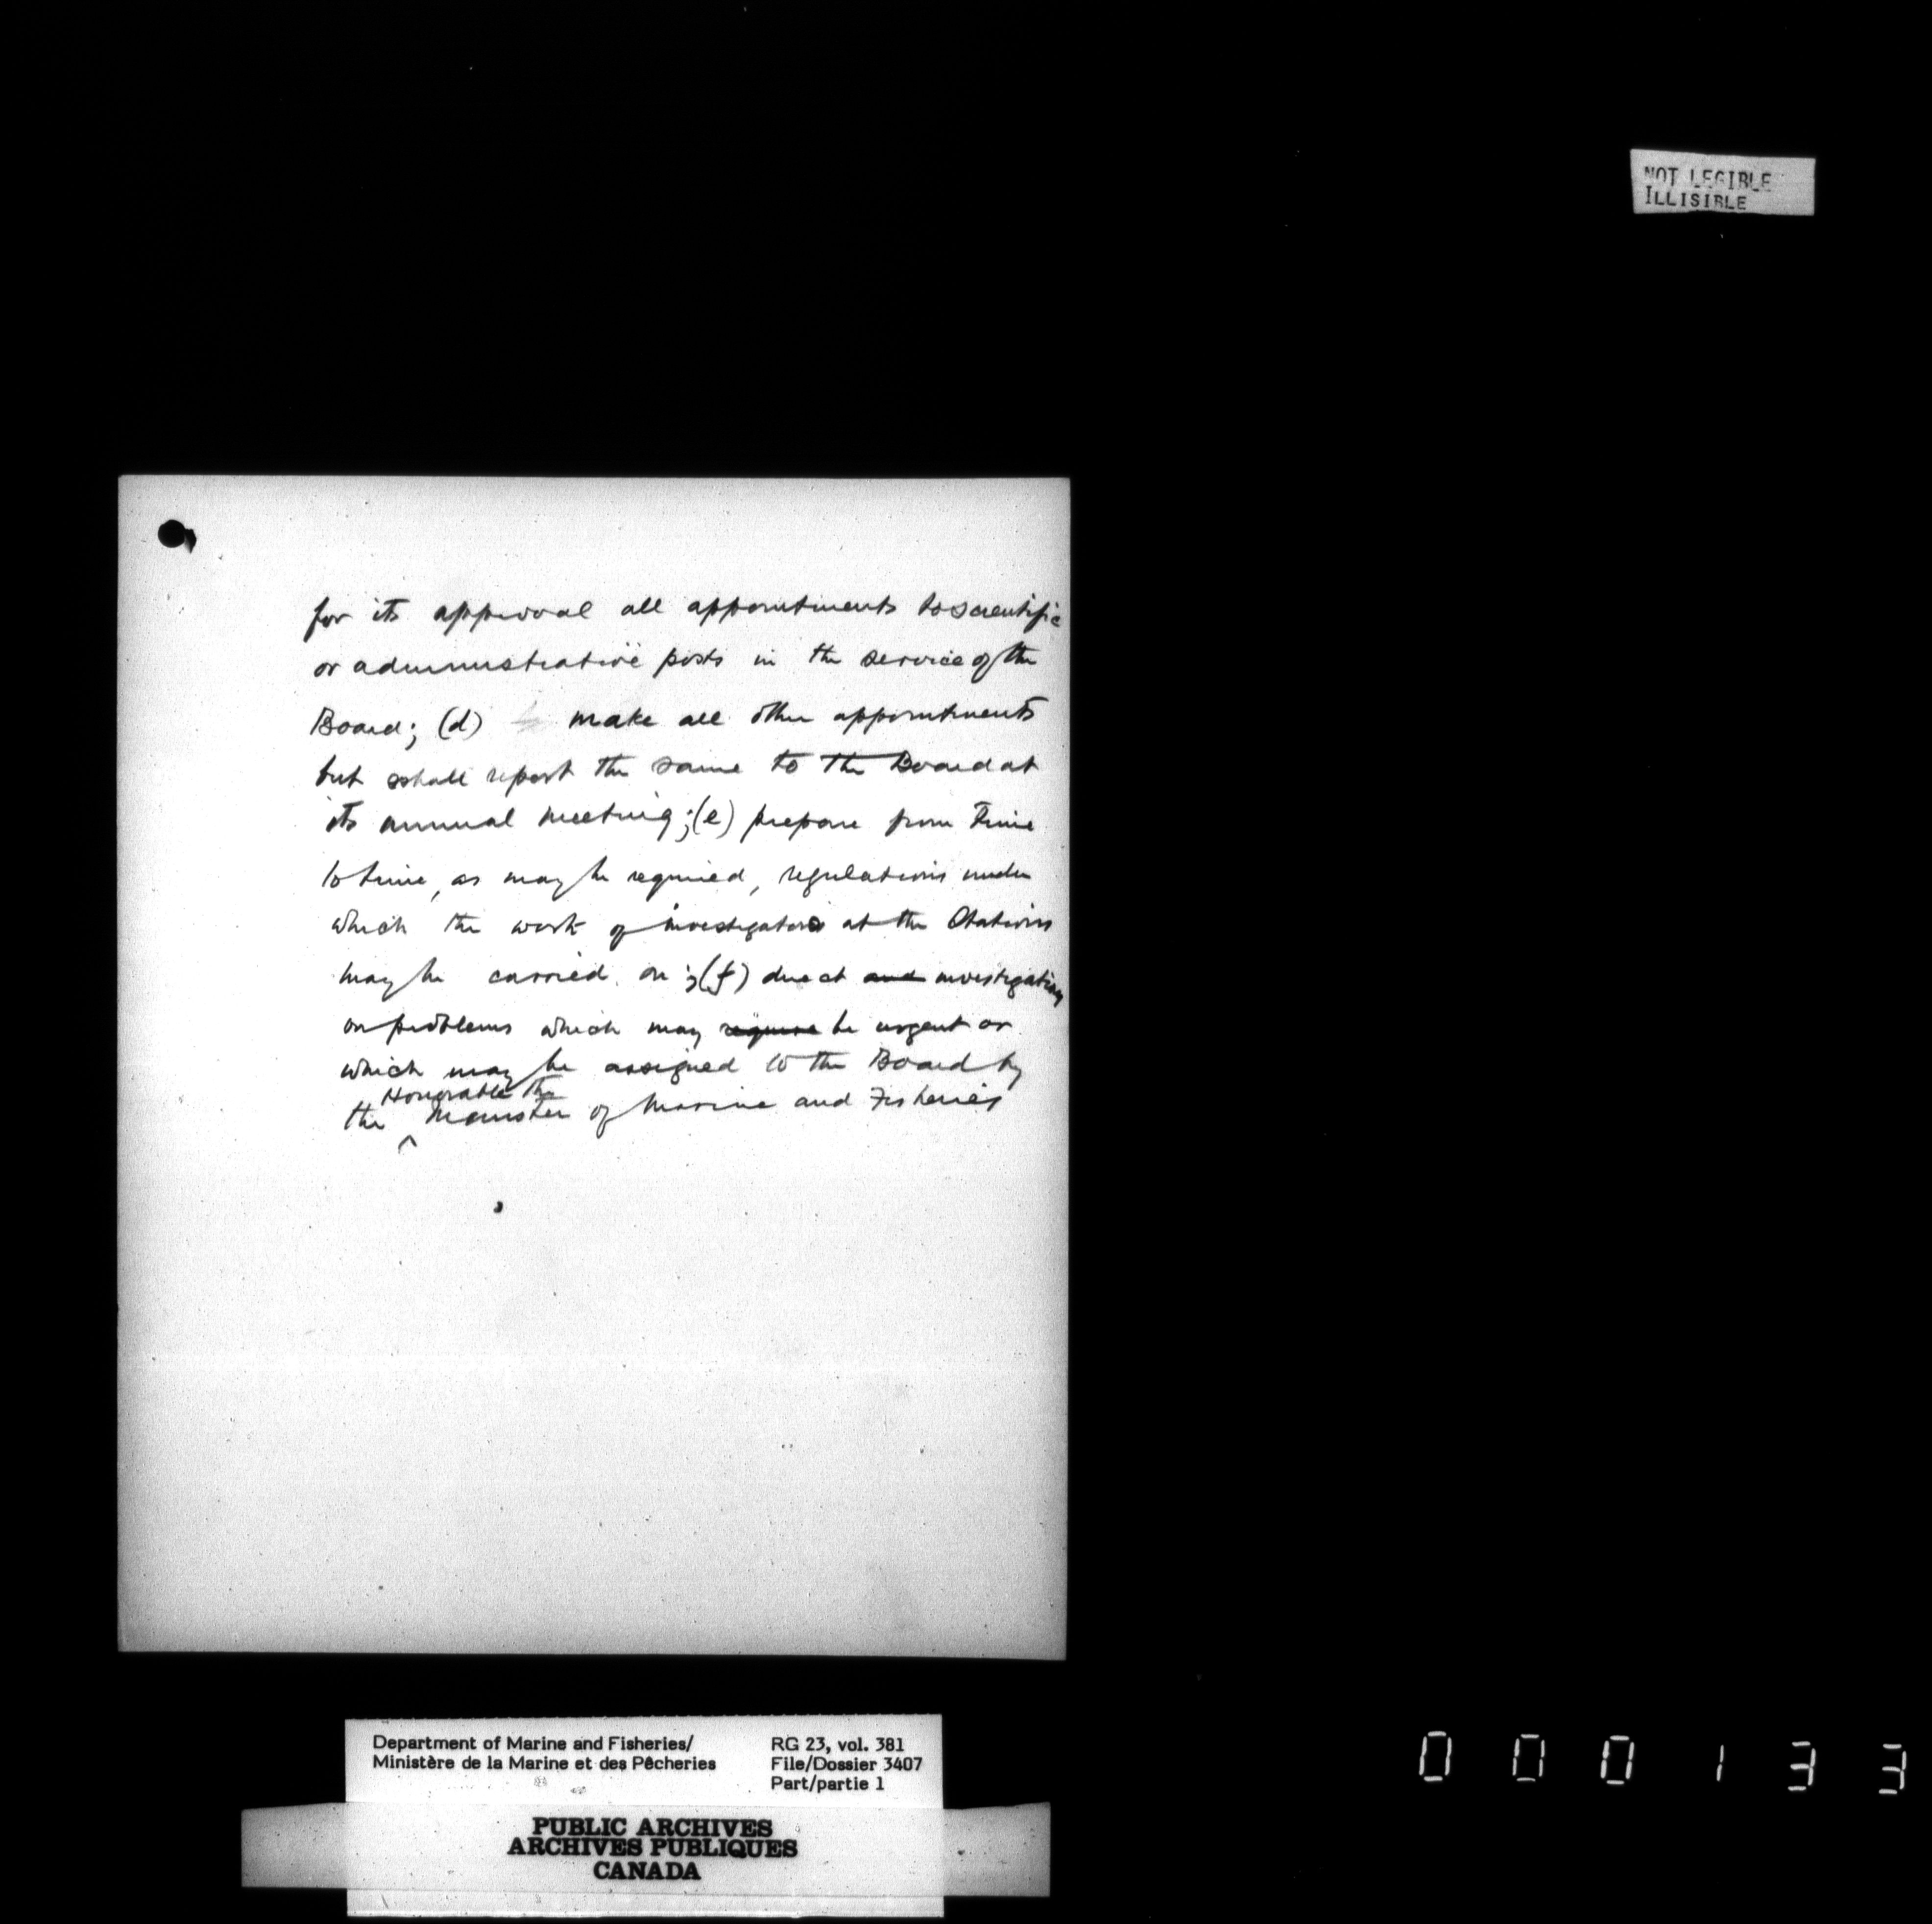 NOT LEGIBLE
ILLISIBLE
for its approval all appointments to scientific
or administrative posts in the service of the
Board; (d) make all other appointments
but shall report the same to the Board at
its annual meeting; (e) prepare from time
to time, as may be required, regulations under
which the work of investigators at the Stations
may be carried on; (f) direct and investigations
on problems which may require be urgent or
which may be assigned to the Board by
Honorable the
the Minister of Marine and Fisheries
Department of Marine and Fisheries/
Ministère de la Marine et des Pêcheries
RG 23, vol. 381
File/Dossier 3407
Part/partie 1
PUBLIC ARCHIVES
ARCHIVES PUBLIQUES
CANADA
0 0 0 1 3 3